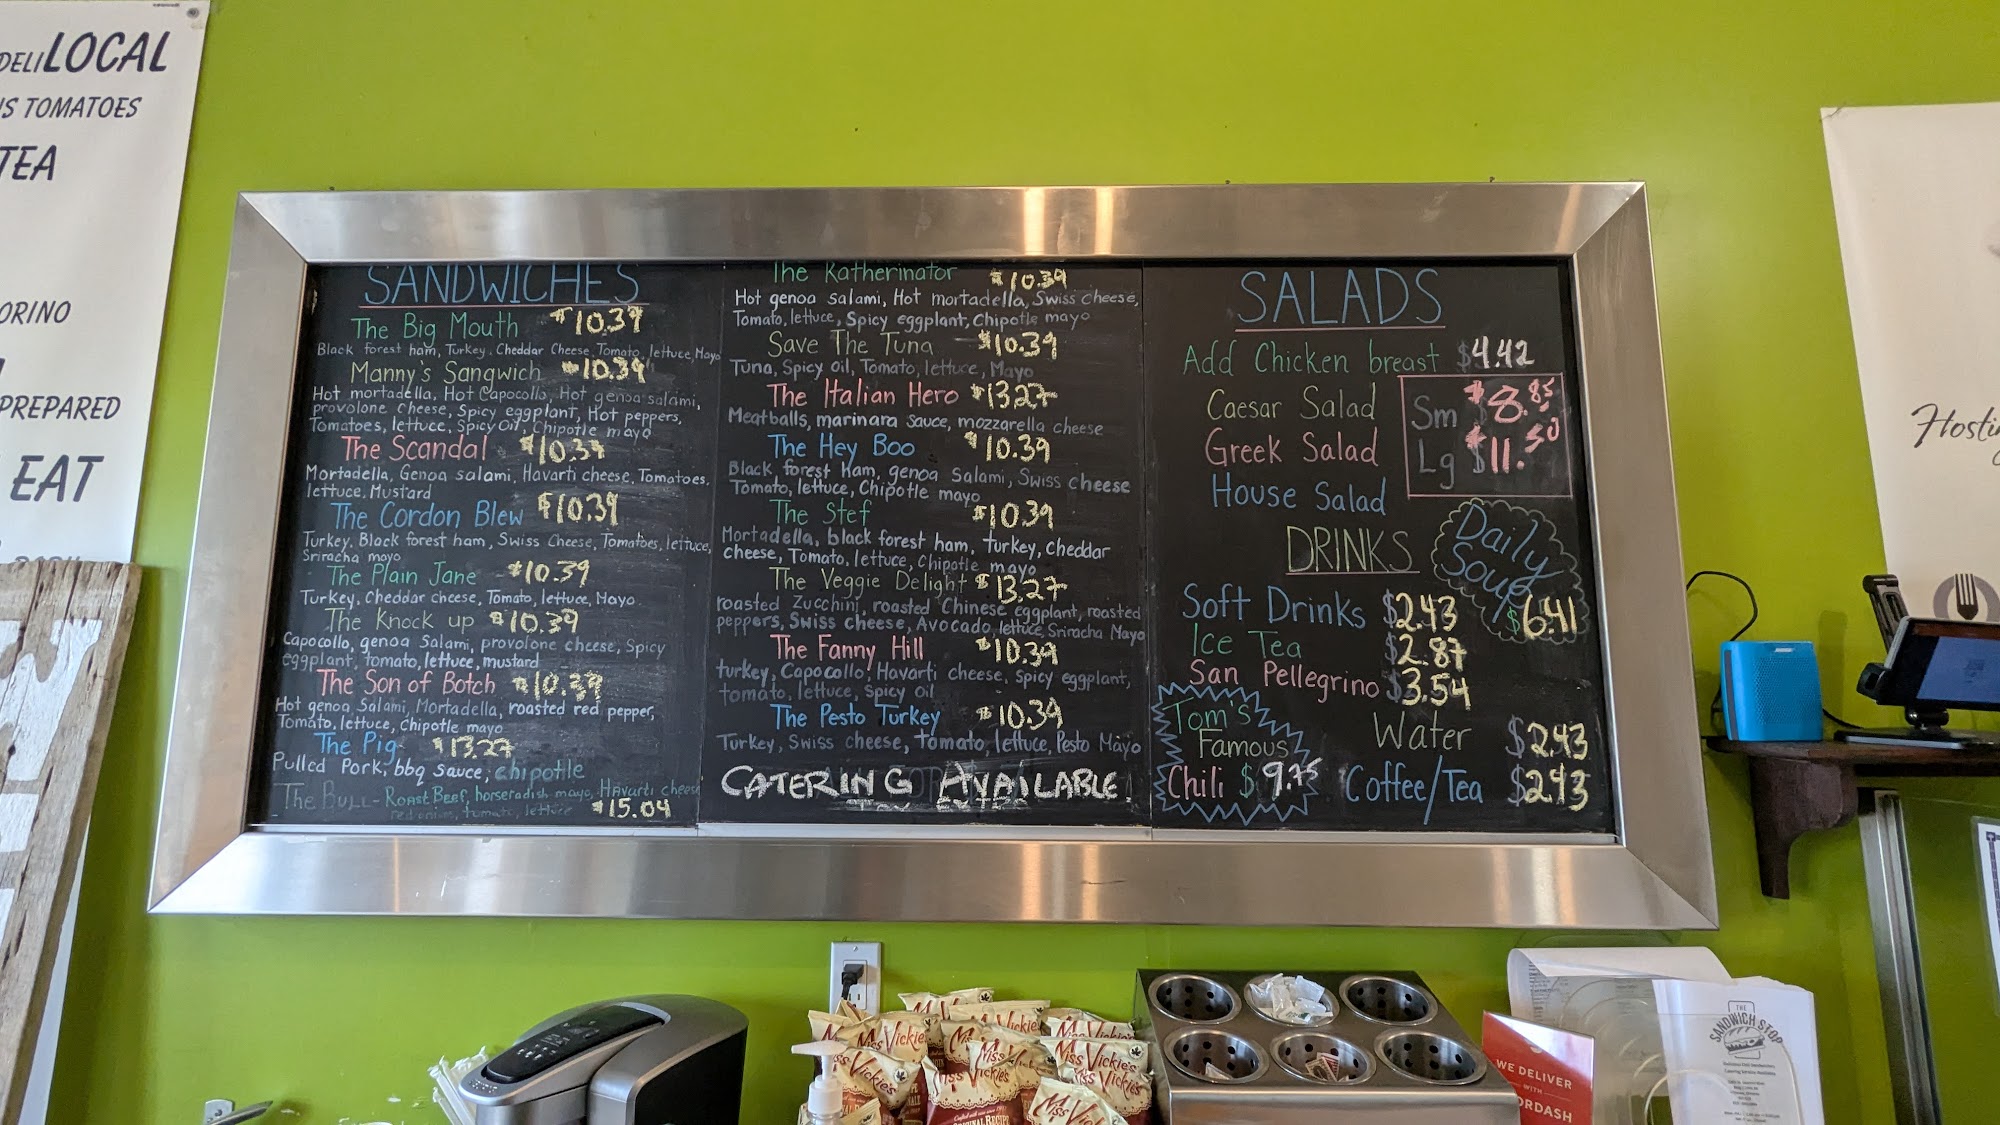 DELI LOCAL
TOMATOES
TEA
PREPARED
EAT
SANDWICHES
The Big Mouth $10.39
Black forest ham, Turkey, Cheddar Cheese, Tomato, lettuce, Mayo
Manny's Sangwich $10.39
Hot mortadella, Hot Capocollo, Hot genoa salami,
provolone cheese, Spicy eggplant, Hot peppers,
Tomatoes, lettuce, Spicy Oil, Chipotle mayo
The Scandal $10.39
Mortadella, Genoa salami, Havarti cheese, Tomatoes,
lettuce, Mustard
The Cordon Blew $10.39
Turkey, Black forest ham, Swiss Cheese, Tomatoes, lettuce,
Sriracha mayo
The Plain Jane $10.39
Turkey, Cheddar cheese, Tomato, lettuce, Mayo
The Knock up $10.39
Capocollo, genoa Salami, provolone cheese, Spicy
eggplant, tomato, lettuce, mustard
The Son of Botch $10.39
Hot genoa Salami, Mortadella, roasted red pepper,
Tomato, lettuce, Chipotle mayo
The Pig $13.27
Pulled Pork, bbq sauce, chipotle
The Bull - Roast Beef, horseradish mayo, Havarti cheese
red onion, tomato, lettuce $15.04
The Katherinator $10.39
Hot genoa salami, Hot mortadella, Swiss cheese,
Tomato, lettuce, Spicy eggplant, Chipotle mayo
Save The Tuna $10.39
Tuna, Spicy Oil, Tomato, lettuce, Mayo
The Italian Hero $13.27
Meatballs, marinara sauce, mozzarella cheese
The Hey Boo $10.39
Black forest ham, genoa Salami, Swiss cheese
Tomato, lettuce, Chipotle mayo
The Stef $10.39
Mortadella, black forest ham, turkey, cheddar
cheese, Tomato, lettuce, Chipotle mayo
The Veggie Delight $13.27
roasted Zucchini, roasted Chinese eggplant, roasted
peppers, Swiss cheese, Avocado, lettuce, Sriracha Mayo
The Fanny Hill $10.39
turkey, Capocollo, Havarti cheese, Spicy eggplant,
tomato, lettuce, Spicy oil
The Pesto Turkey $10.39
Turkey, Swiss cheese, tomato, lettuce, Pesto Mayo
CATERING AVAILABLE
SALADS
Add Chicken breast $4.42
Caesar Salad
Greek Salad
House Salad
Sm $8.85
Lg $11.50
DRINKS
Soft Drinks $2.43
Ice Tea $2.87
San Pellegrino $3.54
Water $2.43
Coffee/Tea $2.43
Daily
Soup
$6.41
Tom's
Famous
Chili $9.75
Miss Vickie's
Miss Vickie's
Miss Vickie's
Miss Vickie's
ORIGINAL RECIPE
WE DELIVER
WITH
THE
SANDWICH STOP